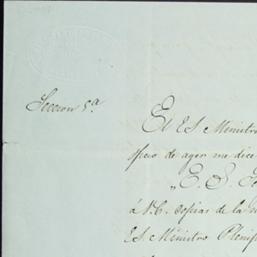 Seccion 5ª
El E S Ministro
oficio de ayer me dice
"E. S.
á V. E. copias de la
E S. Ministro Plenip